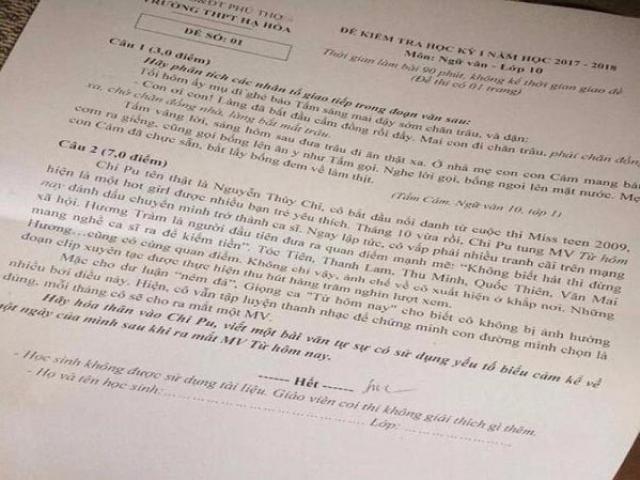 GD&ĐT PHÚ THỌ
TRƯỜNG THPT HẠ HÒA
ĐỀ SỐ: 01
ĐỀ KIỂM TRA HỌC KỲ I NĂM HỌC 2017 - 2018
Môn: Ngữ văn - Lớp 10
Thời gian làm bài 90 phút, không kể thời gian giao đề
(Đề thi có 01 trang)
Câu 1 (3,0 điểm)
Hãy phân tích các nhân tố giao tiếp trong đoạn văn sau:
Tối hôm ấy mụ dì ghẻ bảo Tấm sáng mai dậy sớm chăn trâu, và dặn:
- Con ơi con! Làng đã bắt đầu cấm đồng rồi đấy. Mai con đi chăn trâu, phải chăn đồng
xa, chớ chăn đồng nhà, làng bắt mất trâu.
Tấm vâng lời, sáng hôm sau đưa trâu đi ăn thật xa. Ở nhà mẹ con con Cám mang bát
cơm ra giếng, cũng gọi bống lên ăn y như Tấm gọi. Nghe lời gọi, bống ngoi lên mặt nước. Mẹ
con Cám đã chực sẵn, bắt lấy bống đem về làm thịt.
(Tấm Cám, Ngữ văn 10, tập 1)
Câu 2 (7,0 điểm)
Chi Pu tên thật là Nguyễn Thùy Chi, cô bắt đầu nổi danh từ cuộc thi Miss teen 2009,
hiện là một hot girl được nhiều bạn trẻ yêu thích. Tháng 10 vừa rồi, Chi Pu tung MV Từ hôm
nay đánh dấu chuyển mình trở thành ca sĩ. Ngay lập tức, cô vấp phải nhiều tranh cãi trên mạng
xã hội. Hương Tràm là người đầu tiên đưa ra quan điểm mạnh mẽ: "Không biết hát thì đừng
mang nghề ca sĩ ra để kiếm tiền". Tóc Tiên, Thanh Lam, Thu Minh, Quốc Thiên, Văn Mai
Hương...cũng có cùng quan điểm. Không chỉ vậy, ảnh chế về cô xuất hiện ở khắp nơi. Những
đoạn clip xuyên tạc được thực hiện thu hút hàng trăm nghìn lượt xem.
Mặc cho dư luận "ném đá", Giọng ca "Từ hôm nay" cho biết cô không bị ảnh hưởng
nhiều bởi điều này. Hiện, cô vẫn tập luyện thanh nhạc để chứng minh con đường mình chọn là
đúng, mỗi tháng cô sẽ cho ra mắt một MV.
Hãy hóa thân vào Chi Pu, viết một bài văn tự sự có sử dụng yếu tố biểu cảm kể về
một ngày của mình sau khi ra mắt MV Từ hôm nay.
------ Hết ------
- Học sinh không được sử dụng tài liệu. Giáo viên coi thi không giải thích gì thêm.
- Họ và tên học sinh:........................................ Lớp:................................